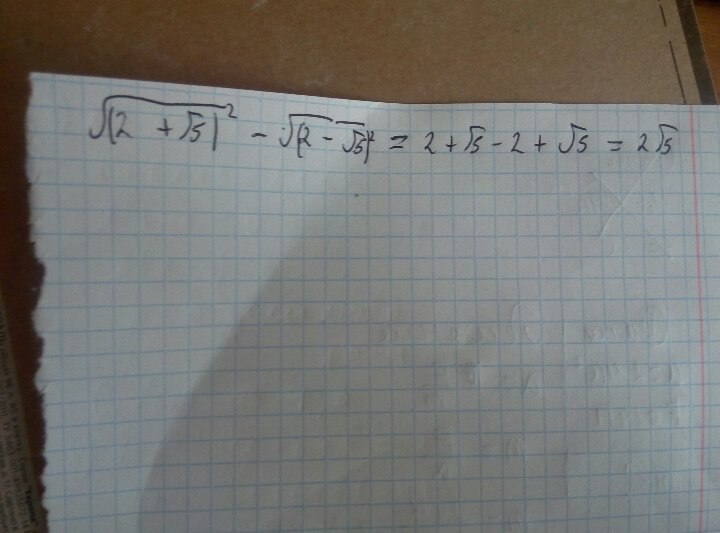 √(2 + √5)² - √(2 - √5)² = 2 + √5 - 2 + √5 = 2√5